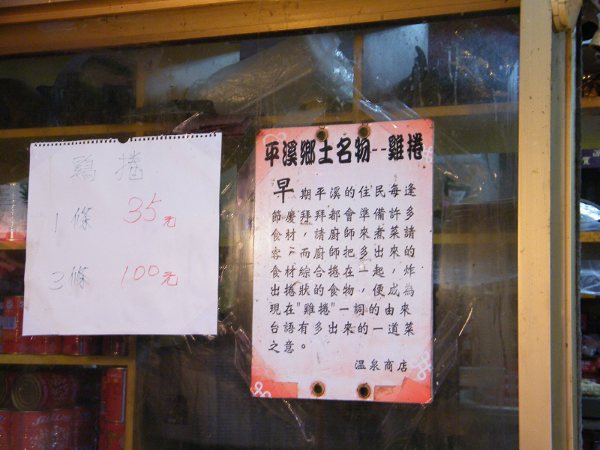 鷄捲
1條 35元
3條 100元
平溪鄉土名物--雞捲
早期平溪的住民每逢
節慶拜拜都會準備許多
食材，請廚師來煮菜請
客，而廚師把多出來的
食材綜合捲在一起，炸
出捲狀的食物，便成為
現在"雞捲"一詞的由來
台語有多出來的一道菜
之意。
溫泉商店